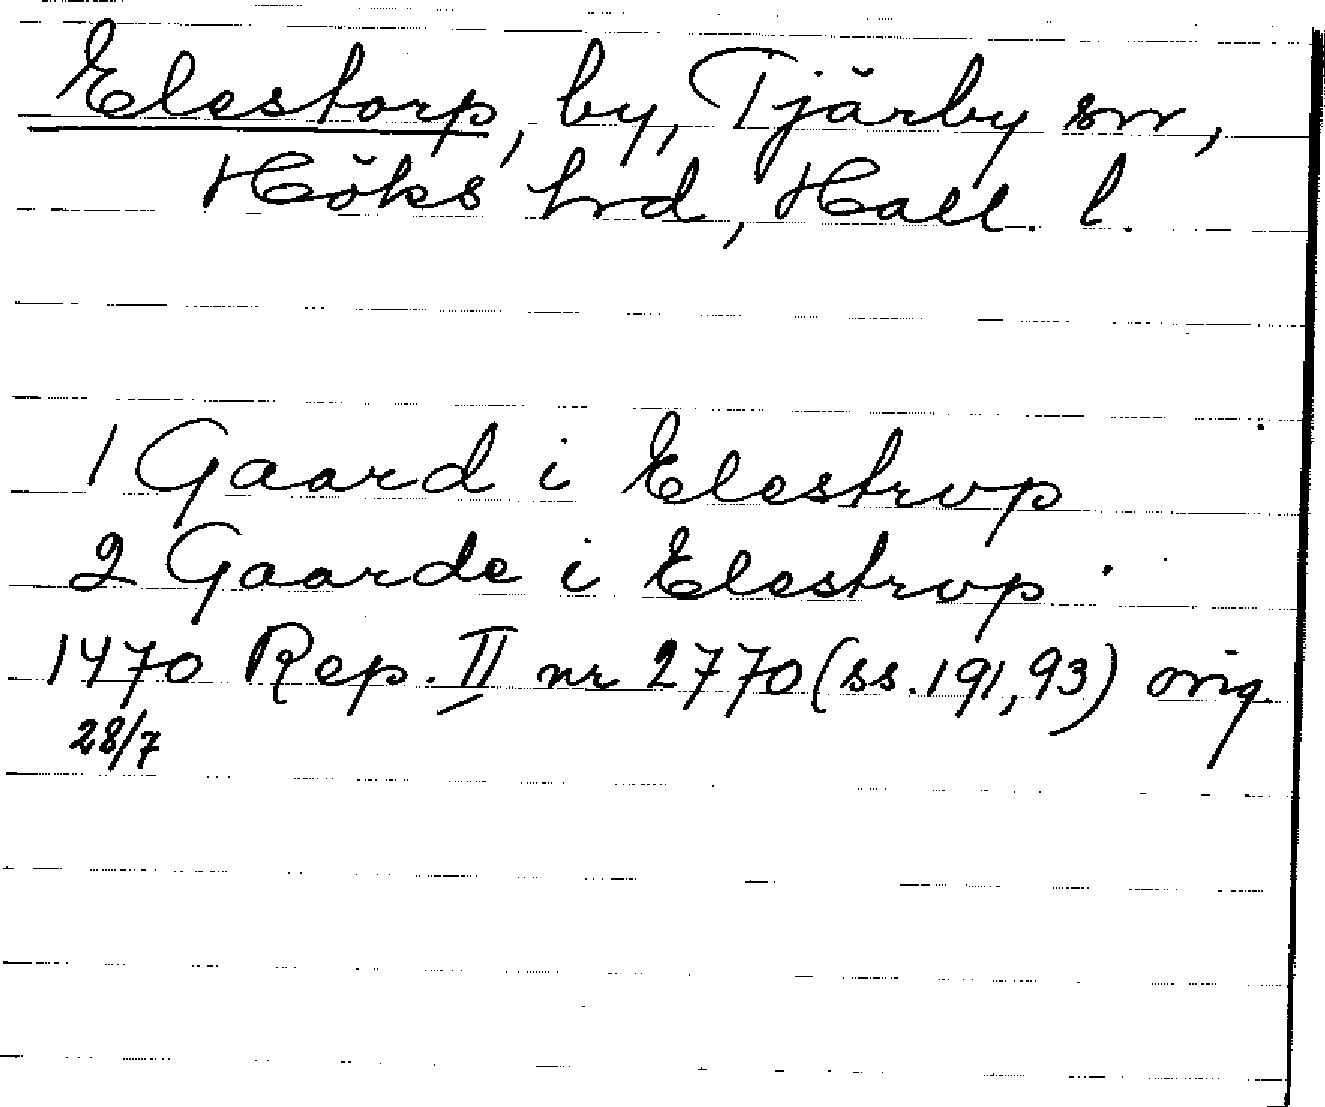 Elestorp, by, Tjärby sn,
Höks hrd, Hall. l.
1 Gaard i Elestrup
2 Gaarde i Elestrup
1470 Rep. II nr 2770 (ss. 191, 93) orig.
28/7